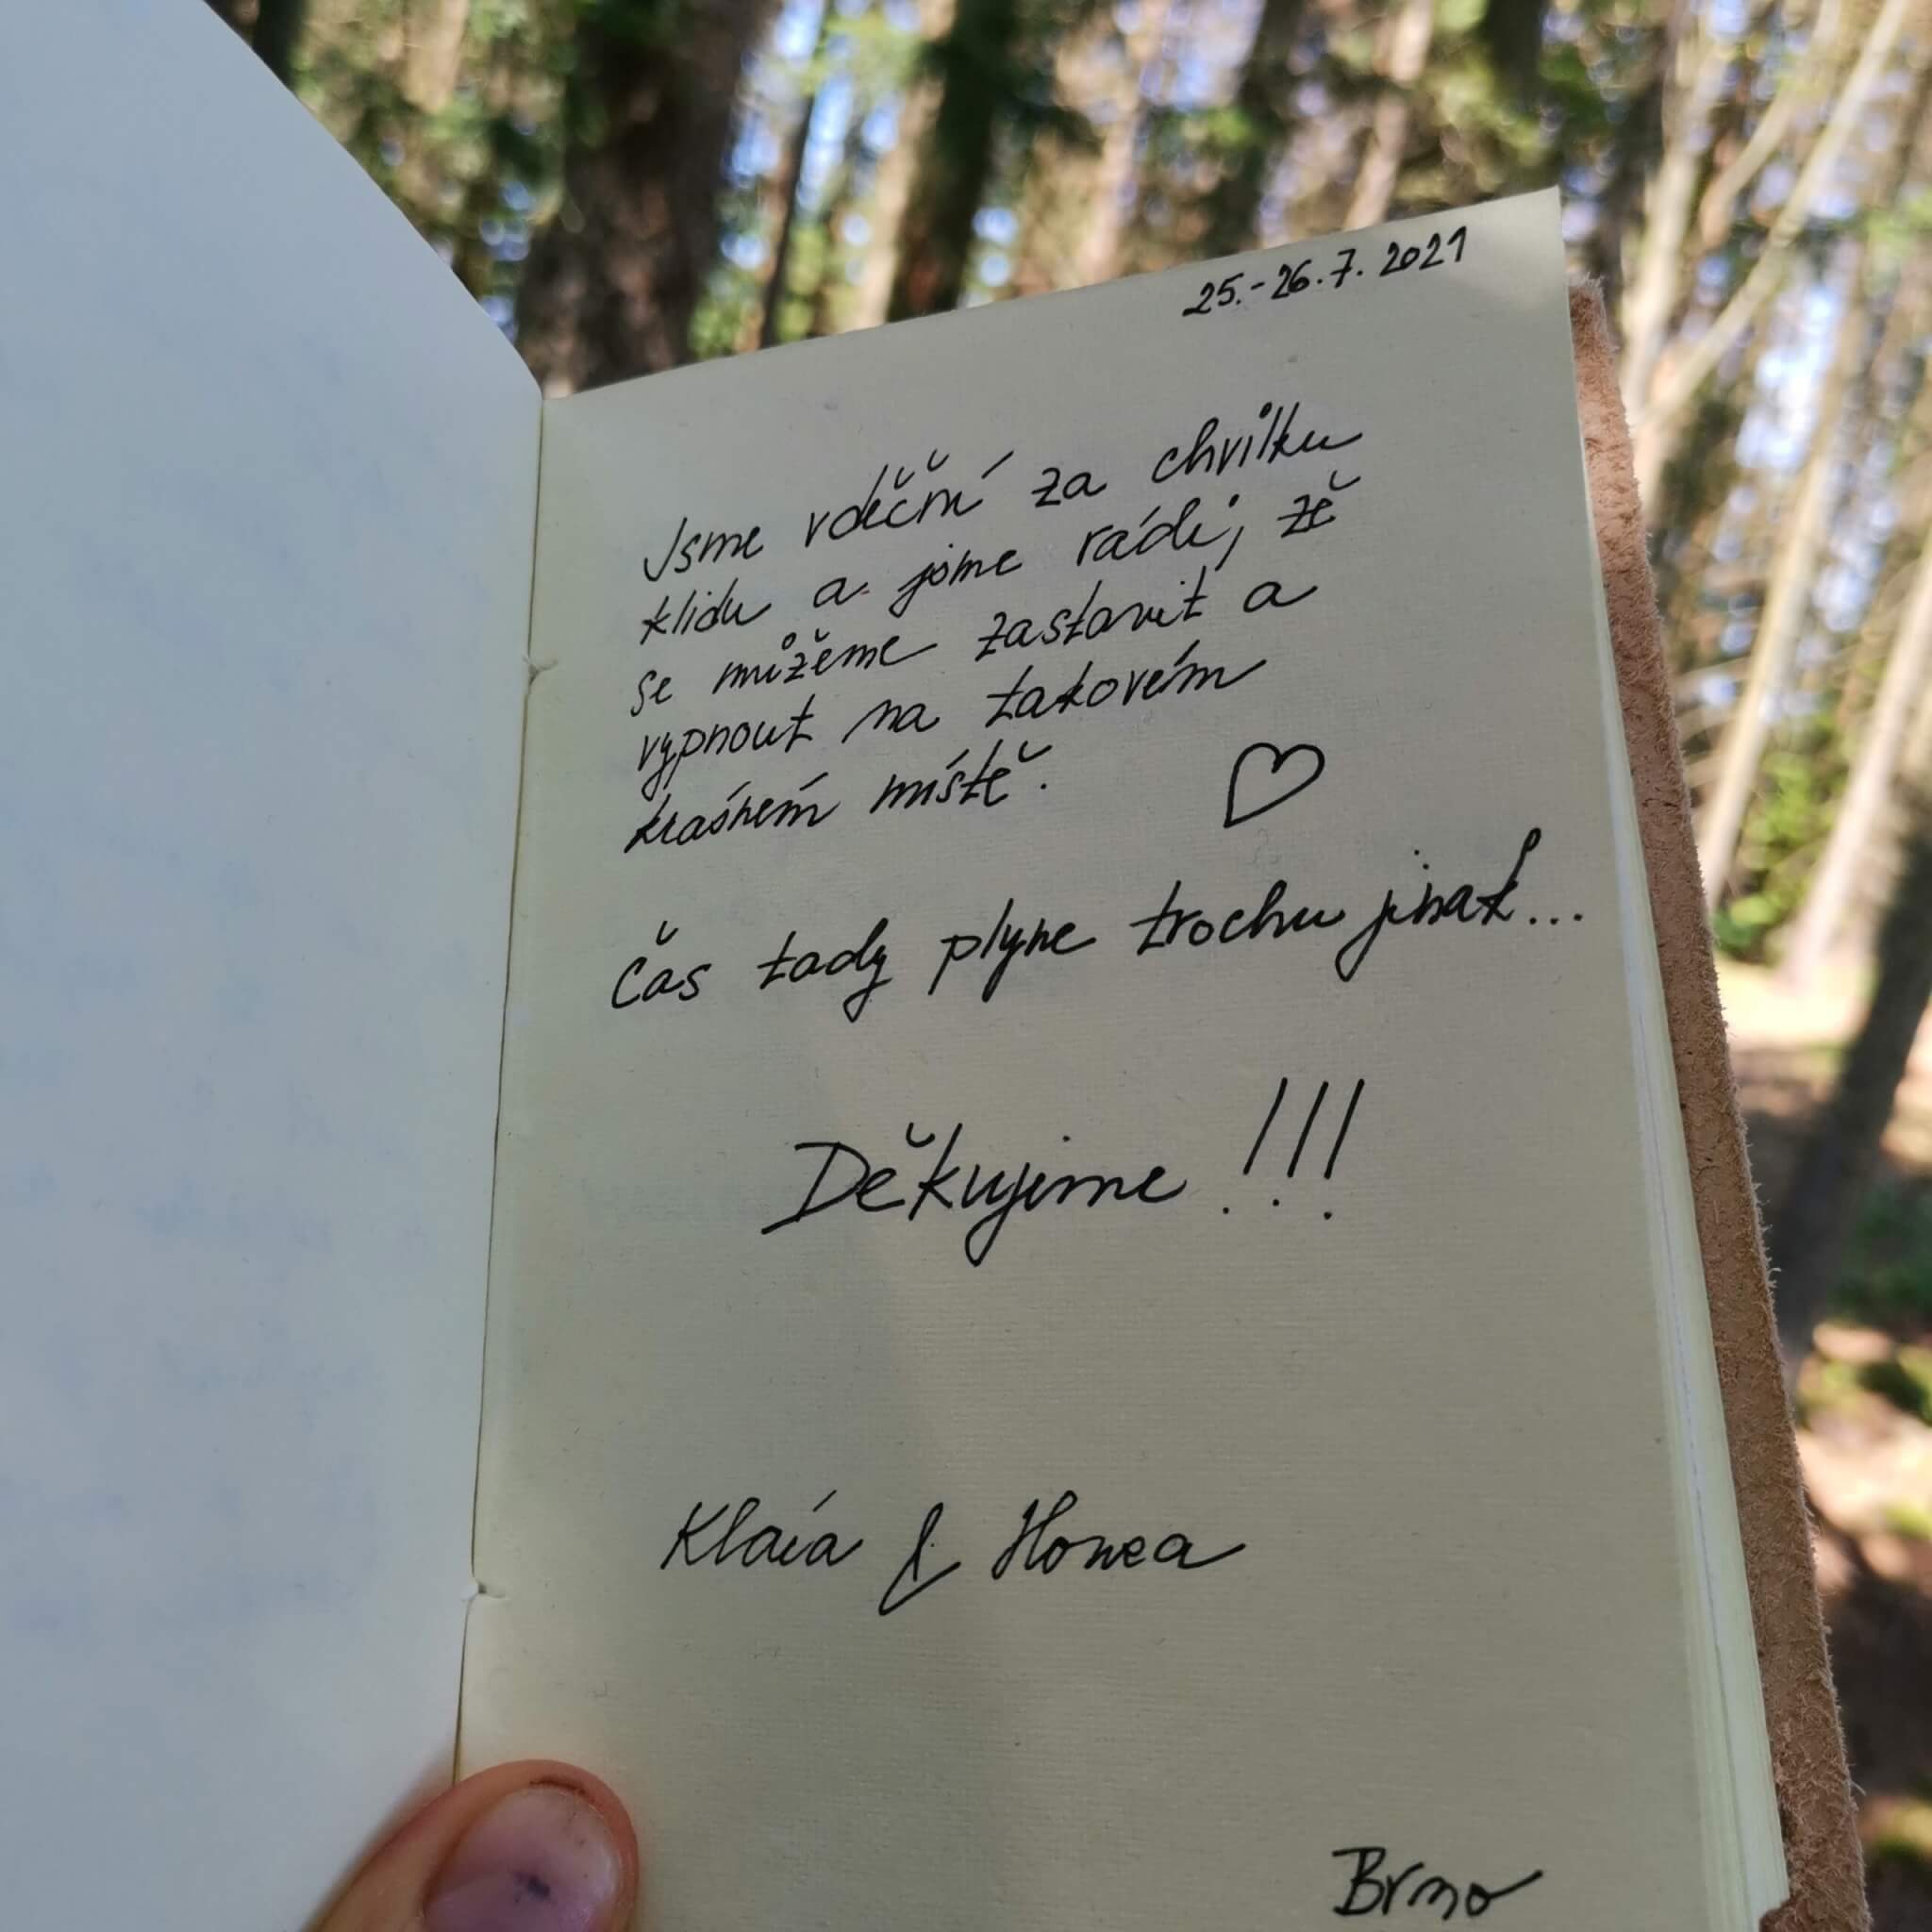 25.-26.7. 2021
Jsme vděční za chvilku
klidu a jsme rádi, že
se můžeme zastavit a
vypnout na takovém
krásném místě.
Čas tady plyne trochu jinak...
Děkujeme!!!
Klára & Honza
Brno